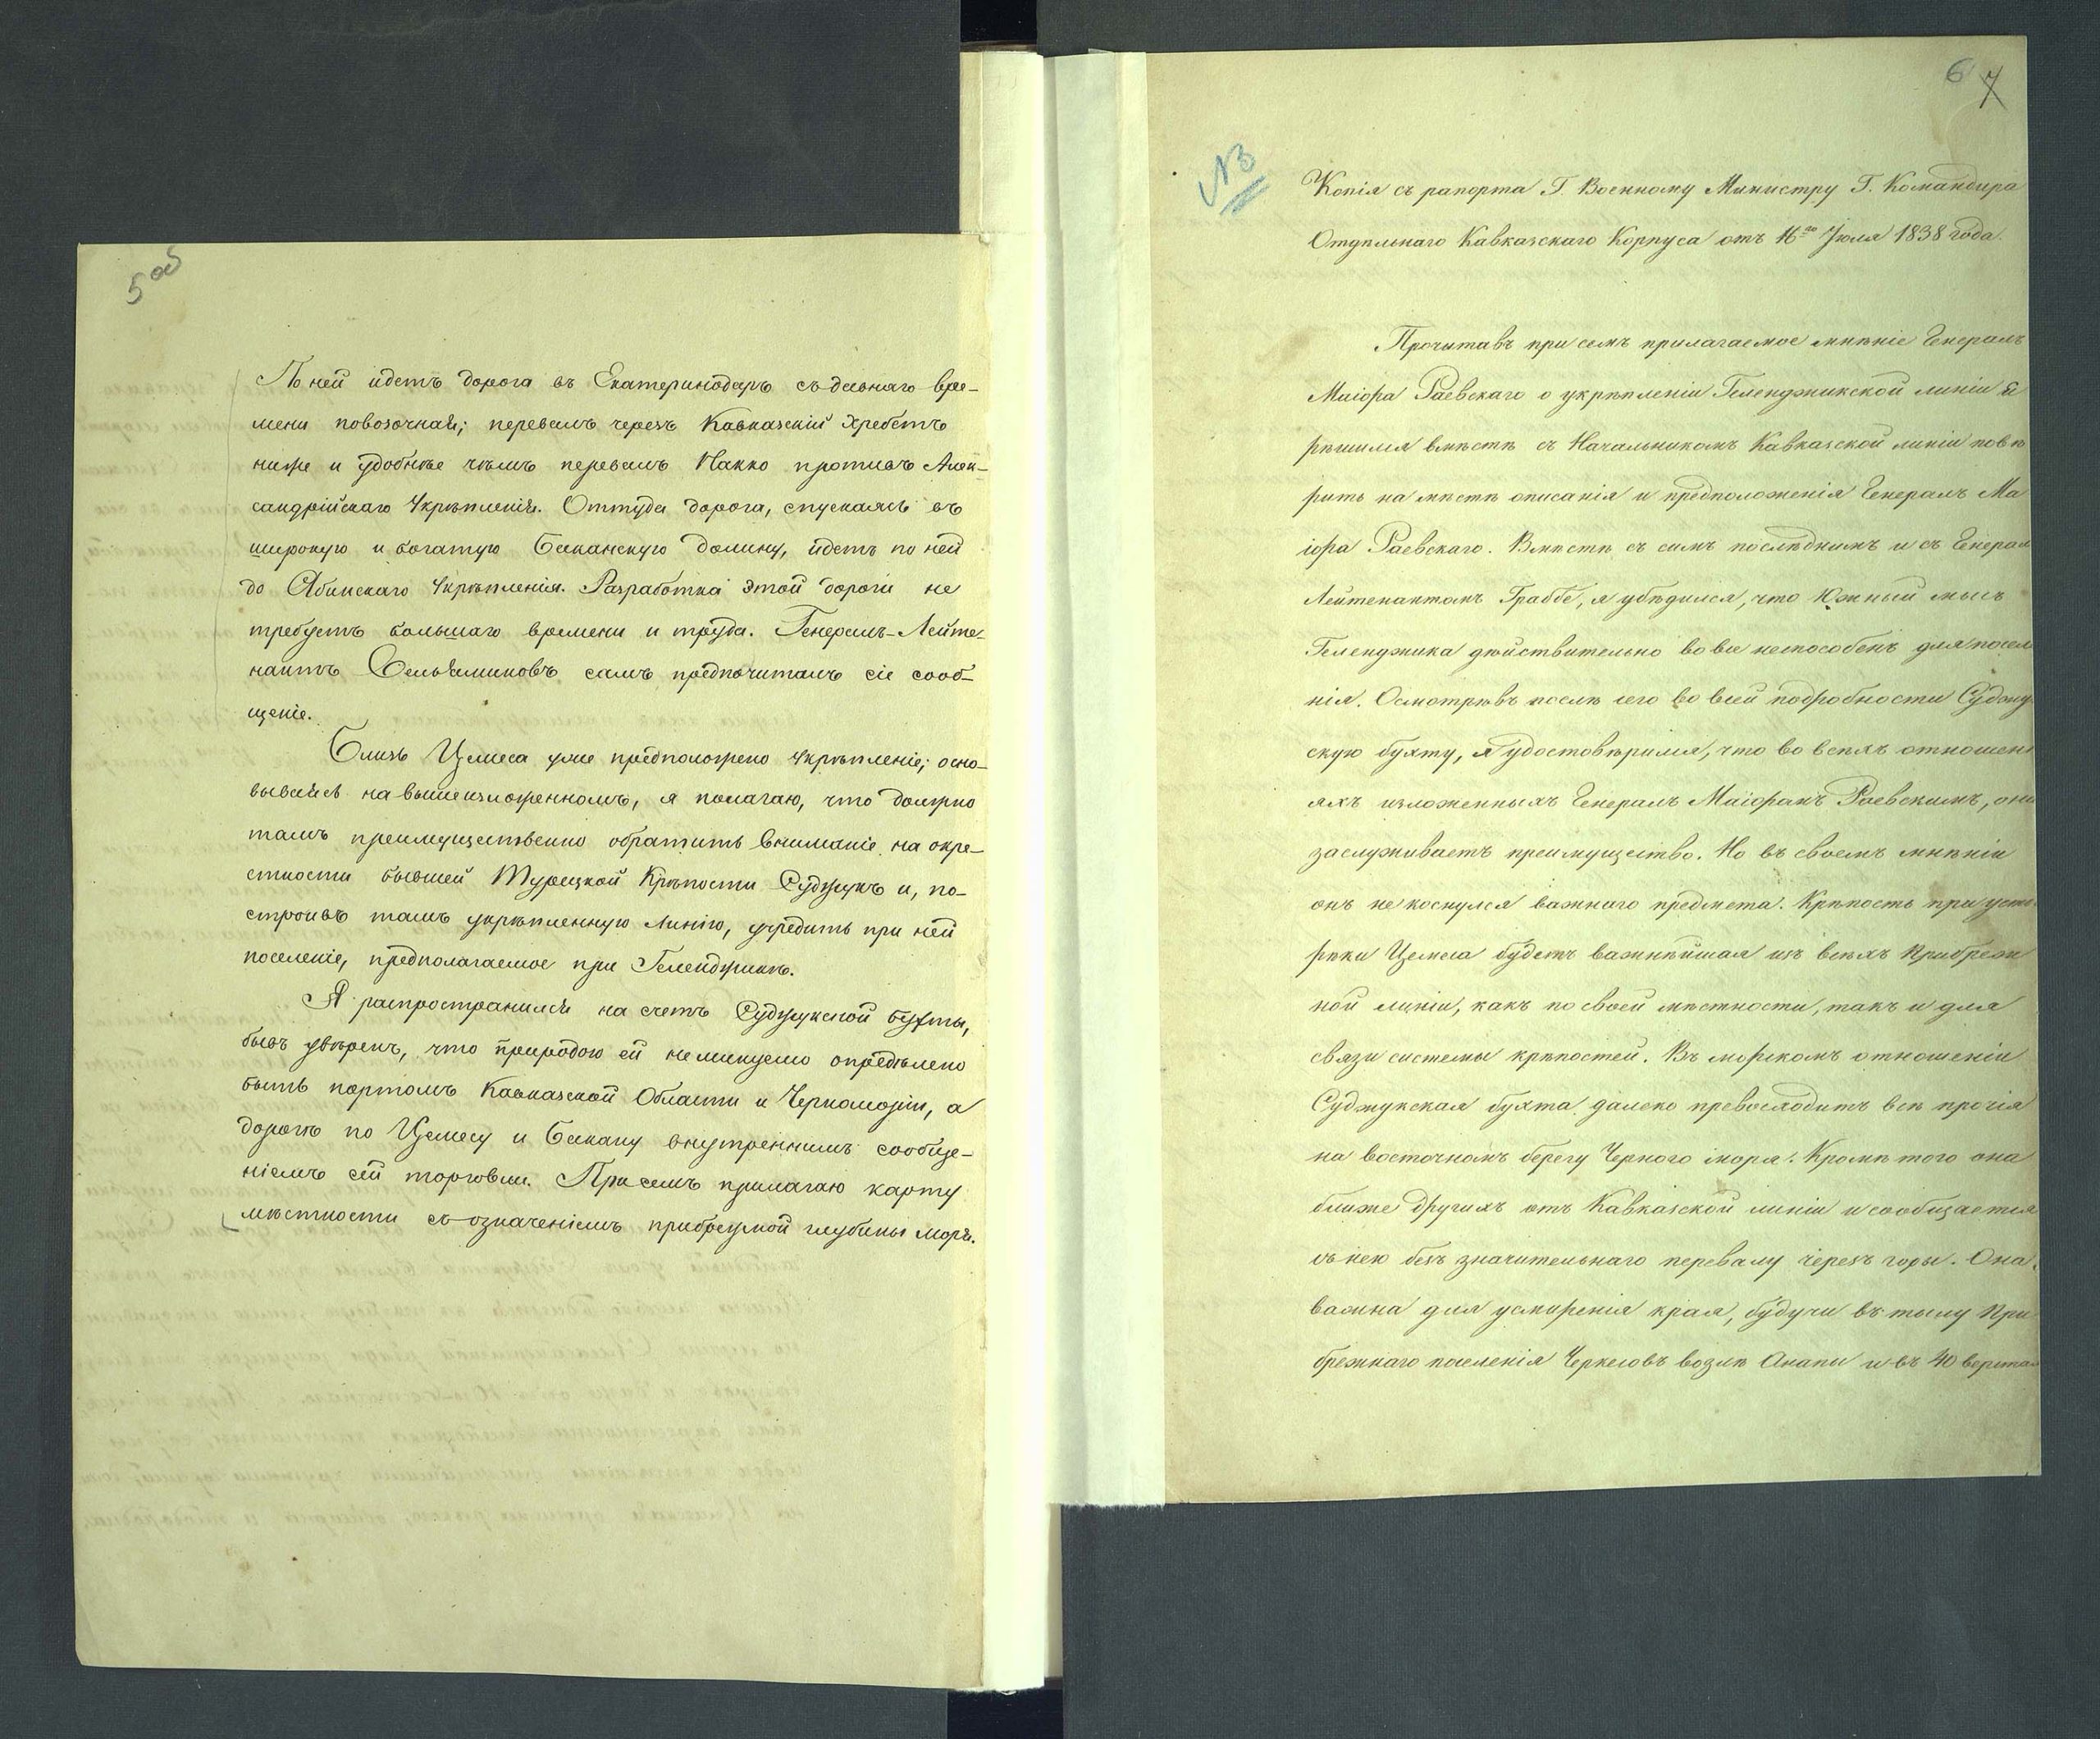 5 об
По ней идетъ дорога въ Екатеринодаръ съ давнаго вре-
мени повозочная; перевалъ черезъ Кавказскій Хребетъ
ниже и удобнѣе чѣмъ перевалъ Накко противъ Алек-
сандрійскаго Укрѣпленія. Оттуда дорога, спускаясь въ
широкую и богатую Баканскую долину, идетъ по ней
до Абинскаго Укрѣпленія. Разработка этой дороги не
требуетъ большаго времени и труда. Генералъ-Лейте-
нантъ Вельяминовъ самъ предпочиталъ сіе сооб-
щеніе.
Близь Цемеса уже предположено Укрѣпленіе; осно-
вываясь на вышеизложенномъ, я полагаю, что должно
тамъ преимущественно обратить вниманіе на окре-
стности бывшей Турецкой Крѣпости Суджукъ и, по-
строивъ тамъ укрѣпленную Линію, учредить при ней
поселеніе, предполагаемое при Геленджикѣ.
Я распространился на счетъ Суджукской бухты,
бывъ увѣренъ, что природою ей неминуемо опредѣлено
быть портомъ Кавказской Области и Черноморіи, а
дорогѣ по Цемесу и Бакану внутреннимъ сообще-
ніемъ сей торговли. При семъ прилагаю карту
мѣстности съ означеніемъ прибрежной глубины моря.
6 7
№3
Копія съ рапорта Г. Военному Министру Г. Командира
Отдѣльнаго Кавказскаго Корпуса отъ 16го Іюля 1838 года.
Прочитавъ при семъ прилагаемое мнѣніе Генералъ
Маіора Раевскаго о укрѣпленіи Геленджикской линіи я
рѣшился вмѣстѣ съ Начальникомъ Кавказской линіи повѣ
рить на мѣстѣ описанія и предположенія Генералъ Ма
іора Раевскаго. Вмѣстѣ съ симъ послѣднимъ и съ Генерал
Лейтенантомъ Граббе, я убѣдился, что Южный мысъ
Геленджика дѣйствительно вовсе неспособенъ для посел
нія. Осмотрѣвъ послѣ сего во всей подробности Суджу
скую бухту, я удостовѣрился, что во всѣхъ отношені
яхъ изложенныхъ Генералъ Маіоромъ Раевскимъ, она
заслуживаетъ преимущество. Но въ своемъ мнѣніи
онъ не коснулся важнаго предмета. Крѣпость при усть
рѣки Цемеса будетъ важнѣйшая изъ всѣхъ Прибреж
ной линіи, какъ по своей мѣстности, такъ и для
связи системы крѣпостей. Въ морскомъ отношеніи
Суджукская бухта далеко превосходитъ всѣ прочія
на восточномъ берегу Чернаго моря. Кромѣ того она
ближе другихъ отъ Кавказской линіи и сообщается
съ нею безъ значительнаго перевалу черезъ горы. Она
важна для усмиренія края, будучи въ тылу При
брежнаго поселенія Черкесовъ возлѣ Анапы и въ 40 верстах